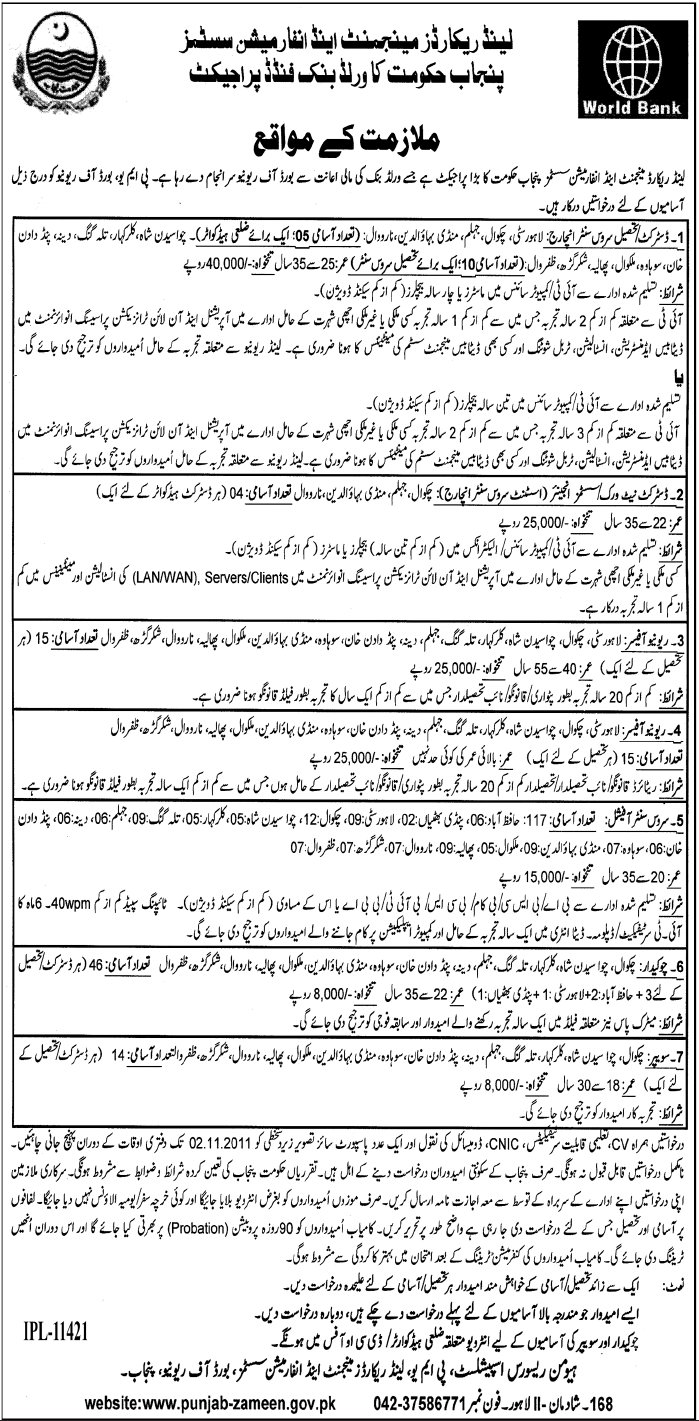 لینڈ ریکارڈز مینجمنٹ اینڈ انفارمیشن سسٹمز
پنجاب حکومت کا ورلڈ بنک فنڈڈ پراجیکٹ
World Bank
ملازمت کے مواقع
لینڈ ریکارڈ مینجمنٹ اینڈ انفارمیشن سسٹمز پنجاب حکومت کا بڑا پراجیکٹ ہے جسے ورلڈ بنک کی مالی اعانت سے بورڈ آف ریونیو سرانجام دے رہا ہے۔ پی ایم یو، بورڈ آف ریونیو کو درج ذیل
آسامیوں کے لئے درخواستیں درکار ہیں۔
1۔ ڈسٹرکٹ/تحصیل سروس سنٹر انچارج: لاہور سٹی، چکوال، جہلم، منڈی بہاؤالدین، نارووال: (تعداد آسامی 05؛ ایک برائے ضلعی ہیڈکوارٹر)۔ چواسیدن شاہ، کلرکہار، تلہ گنگ، دینہ، پنڈ دادن
خان، سوہاوہ، ملکوال، پھالیہ، شکرگڑھ، ظفروال: (تعداد آسامی 10؛ ایک برائے تحصیل سروس سنٹر) عمر: 25سے35سال تنخواہ: -/40,000 روپے
شرائط: تسلیم شدہ ادارے سے آئی ٹی/کمپیوٹر سائنس میں ماسٹرز یا چار سالہ بیچلرز (کم از کم سیکنڈ ڈویژن)۔
آئی ٹی سے متعلقہ کم از کم 2 سالہ تجربہ جس میں سے کم از کم 1 سالہ تجربہ کسی ملکی یا غیرملکی اچھی شہرت کے حامل ادارے میں آپریشنل اینڈ آن لائن ٹرانزیکشن پراسیسنگ انوائرنمنٹ میں
ڈیٹابیس ایڈمنسٹریشن، انسٹالیشن، ٹربل شوٹنگ اور کسی بھی ڈیٹابیس مینجمنٹ سسٹم کی مینٹیننس کا ہونا ضروری ہے۔ لینڈ ریونیو سے متعلقہ تجربہ کے حامل اُمیدواروں کو ترجیح دی جائے گی۔
یا
تسلیم شدہ ادارے سے آئی ٹی/کمپیوٹر سائنس میں تین سالہ بیچلرز (کم از کم سیکنڈ ڈویژن)۔
آئی ٹی سے متعلقہ کم از کم 3 سالہ تجربہ جس میں سے کم از کم 2 سالہ تجربہ کسی ملکی یا غیرملکی اچھی شہرت کے حامل ادارے میں آپریشنل اینڈ آن لائن ٹرانزیکشن پراسیسنگ انوائرنمنٹ میں
ڈیٹابیس ایڈمنسٹریشن، انسٹالیشن، ٹربل شوٹنگ اور کسی بھی ڈیٹابیس مینجمنٹ سسٹم کی مینٹیننس کا ہونا ضروری ہے۔ لینڈ ریونیو سے متعلقہ تجربہ کے حامل اُمیدواروں کو ترجیح دی جائے گی۔
2۔ ڈسٹرکٹ نیٹ ورک/سسٹمز انجینئر (اسٹنٹ سروس سنٹر انچارج): چکوال، جہلم، منڈی بہاؤالدین، نارووال تعداد آسامی: 04 (ہر ڈسٹرکٹ ہیڈکوارٹر کے لئے ایک)
عمر: 22سے 35 سال تنخواہ: -/25,000 روپے
شرائط: تسلیم شدہ ادارے سے آئی ٹی/کمپیوٹر سائنس/الیکٹرانکس میں (کم از کم تین سالہ) بیچلرز یا ماسٹرز (کم از کم سیکنڈ ڈویژن)۔
کسی ملکی یا غیرملکی اچھی شہرت کے حامل ادارے میں آپریشنل اینڈ آن لائن ٹرانزیکشن پراسیسنگ انوائرنمنٹ میں LAN/WAN), Servers/Clients) کی انسٹالیشن اور مینٹیننس میں کم
از کم 1 سالہ تجربہ درکار ہے۔
3۔ ریونیو آفیسر: لاہور سٹی، چکوال، چواسیدن شاہ، کلرکہار، تلہ گنگ، جہلم، دینہ، پنڈ دادن خان، سوہاوہ، منڈی بہاؤالدین، ملکوال، پھالیہ، نارووال، شکرگڑھ، ظفروال تعداد آسامی: 15 (ہر
تحصیل کے لئے ایک) عمر: 40سے 55 سال تنخواہ: -/25,000 روپے
شرائط: کم از کم 20 سالہ تجربہ بطور پٹواری/قانونگو/نائب تحصیلدار جس میں سے کم از کم ایک سال کا تجربہ بطور فیلڈ قانونگو ہونا ضروری ہے۔
4۔ ریونیو آفیسر: لاہور سٹی، چکوال، چواسیدن شاہ، کلرکہار، تلہ گنگ، جہلم، دینہ، پنڈ دادن خان، سوہاوہ، منڈی بہاؤالدین، ملکوال، پھالیہ، نارووال، شکرگڑھ، ظفروال
تعداد آسامی: 15 (ہر تحصیل کے لئے ایک) عمر: بالائی عمر کی کوئی حد نہیں تنخواہ: -/25,000 روپے
شرائط: ریٹائرڈ قانونگو/نائب تحصیلدار/تحصیلدار کم از کم 20 سالہ تجربہ بطور پٹواری/قانونگو/نائب تحصیلدار کے حامل ہوں جس میں سے کم از کم ایک سالہ تجربہ بطور فیلڈ قانونگو ہونا ضروری ہے۔
5۔ سروس سنٹر آفیشل: تعداد آسامی: 117: حافظ آباد:06، پنڈی بھٹیاں:02، لاہور سٹی:09، چکوال:12، چوا سیدن شاہ:05، کلرکہار:05، تلہ گنگ:09، جہلم:06، دینہ:06، پنڈ دادن
خان:06، سوہاوہ:07، منڈی بہاؤالدین:09، ملکوال:05، پھالیہ:09، نارووال:07، شکرگڑھ:07، ظفروال:07
عمر: 20سے 35 سال تنخواہ: -/15,000 روپے
شرائط: تسلیم شدہ ادارے سے بی اے/بی ایس سی/بی کام/بی سی ایس/بی آئی ٹی/بی بی اے یا اس کے مساوی (کم از کم سیکنڈ ڈویژن)۔ ٹائپنگ سپیڈ کم از کم 40wpm۔ 6ماہ کا
آئی۔ٹی سرٹیفکیٹ/ڈپلومہ۔ ڈیٹا انٹری میں ایک سالہ تجربہ کے حامل اور کمپیوٹر ایپلیکیشن پر کام جاننے والے امیدواروں کو ترجیح دی جائے گی۔
6۔ چوکیدار: چکوال، چوا سیدن شاہ، کلرکہار، تلہ گنگ، جہلم، دینہ، پنڈ دادن خان، سوہاوہ، منڈی بہاؤالدین، ملکوال، پھالیہ، نارووال، شکرگڑھ، ظفروال تعداد آسامی: 46 (ہر ڈسٹرکٹ/تحصیل
کے لئے3 + حافظ آباد:2+لاہور سٹی: 1 + پنڈی بھٹیاں: 1) عمر: 22سے 35 سال تنخواہ: -/8,000 روپے
شرائط: میٹرک پاس نیز متعلقہ فیلڈ میں ایک سالہ تجربہ رکھنے والے امیدوار اور سابقہ فوجی کو ترجیح دی جائے گی۔
7۔ سویپر: چکوال، چوا سیدن شاہ، کلرکہار، تلہ گنگ، جہلم، دینہ، پنڈ دادن خان، سوہاوہ، منڈی بہاؤالدین، ملکوال، پھالیہ، نارووال، شکرگڑھ، ظفروال تعداد آسامی: 14 (ہر ڈسٹرکٹ/تحصیل کے
لئے ایک) عمر: 18سے 30 سال تنخواہ: -/8,000 روپے
شرائط: تجربہ کار امیدوار کو ترجیح دی جائے گی۔
درخواستیں ہمراہ CV، تعلیمی قابلیت سرٹیفکیٹس، CNIC، ڈومیسائل کی نقول اور ایک عدد پاسپورٹ سائز تصویر زیردستخطی کو 02.11.2011 تک دفتری اوقات کے دوران پہنچ جانی چاہئیں۔
نامکمل درخواستیں قابل قبول نہ ہونگی۔ صرف پنجاب کے سکونتی امیدوران درخواست دینے کے اہل ہیں۔ تقرریاں حکومت پنجاب کی تعین کردہ شرائط و ضوابط سے مشروط ہونگی۔ سرکاری ملازمین
اپنی درخواستیں اپنے ادارے کے سربراہ کے توسط سے معہ اجازت نامہ ارسال کریں۔ صرف موزوں اُمیدواروں کو بغرض انٹرویو بلایا جائیگا اور کوئی خرچہ سفر/یومیہ الاؤنس نہیں دیا جائیگا۔ لفافوں
پر آسامی اور تحصیل جس کے لئے درخواست دی جا رہی ہے واضح طور پر تحریر کریں۔ کامیاب اُمیدواروں کو 90روزہ پروبیشن (Probation) پر بھرتی کیا جائے گا اور اس دوران اُنھیں
ٹریننگ دی جائے گی۔ کامیاب اُمیدواروں کی کنفرمیشن ٹریننگ کے بعد امتحان میں بہتر کارکردگی سے مشروط ہوگی۔
نوٹ: ایک سے زائد تحصیل/آسامی کے خواہش مند امیدوار ہر تحصیل/آسامی کے لئے علیحدہ درخواست دیں۔
ایسے امیدوار جو مندرجہ بالا آسامیوں کے لئے پہلے درخواست دے چکے ہیں، دوبارہ درخواست دیں۔
چوکیدار اور سویپر کی آسامیوں کے لیے انٹرویو متعلقہ ضلعی ہیڈکوارٹر/ڈی سی او آفس میں ہونگے۔
IPL-11421
ہیومن ریسورس اسپیشلسٹ، پی ایم یو، لینڈ ریکارڈز مینجمنٹ اینڈ انفارمیشن سسٹمز، بورڈ آف ریونیو، پنجاب۔
168۔ شادمان-II لاہور۔ فون نمبر 37586771-042 website:www.punjab-zameen.gov.pk